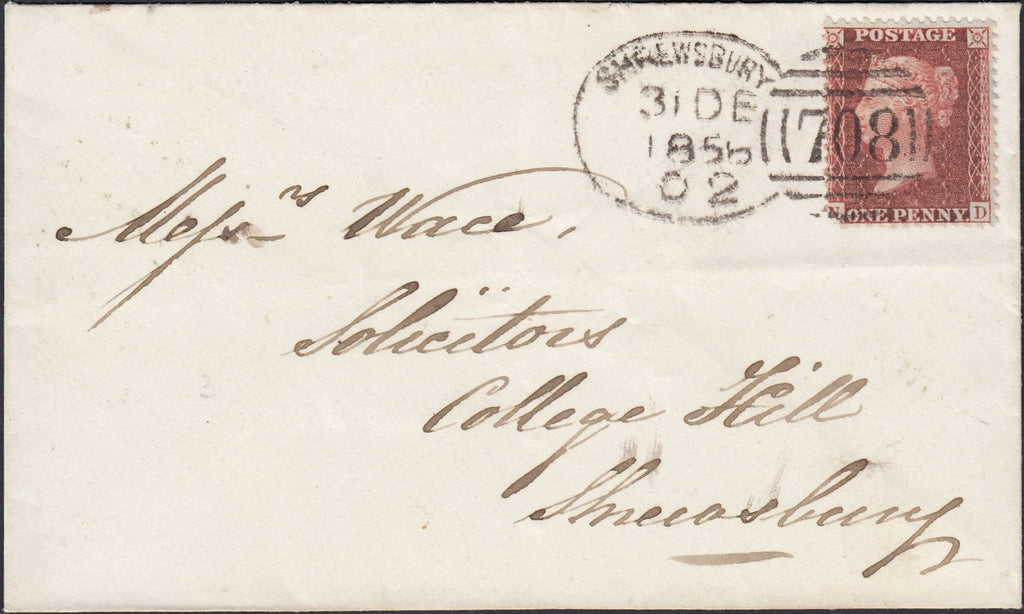 POSTAGE
SHREWSBURY
31 DE
1856
C 2
708
N ONE PENNY D
Messrs Wace,
Solicitors
College Hill
Shrewsbury